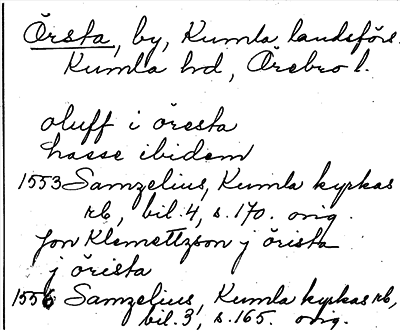 Örsta, by, Kumla landsförs.
Kumla hd, Örebro l.
oluff i öresta
hasse ibidem
1553 Samzelius, Kumla kyrkas
rb, bil. 4, s. 170. orig.
Jon Klemettzson j örista
j örista
1556 Samzelius, Kumla kyrkas rb,
bil. 3, s. 165. orig.